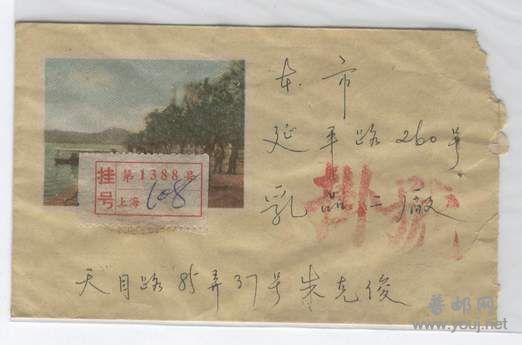 本市
延平路260号
乳品二厂
挂号
挂号
第1388号
上海
108
天目路85弄37号朱克俊
普邮网
www.youj.net